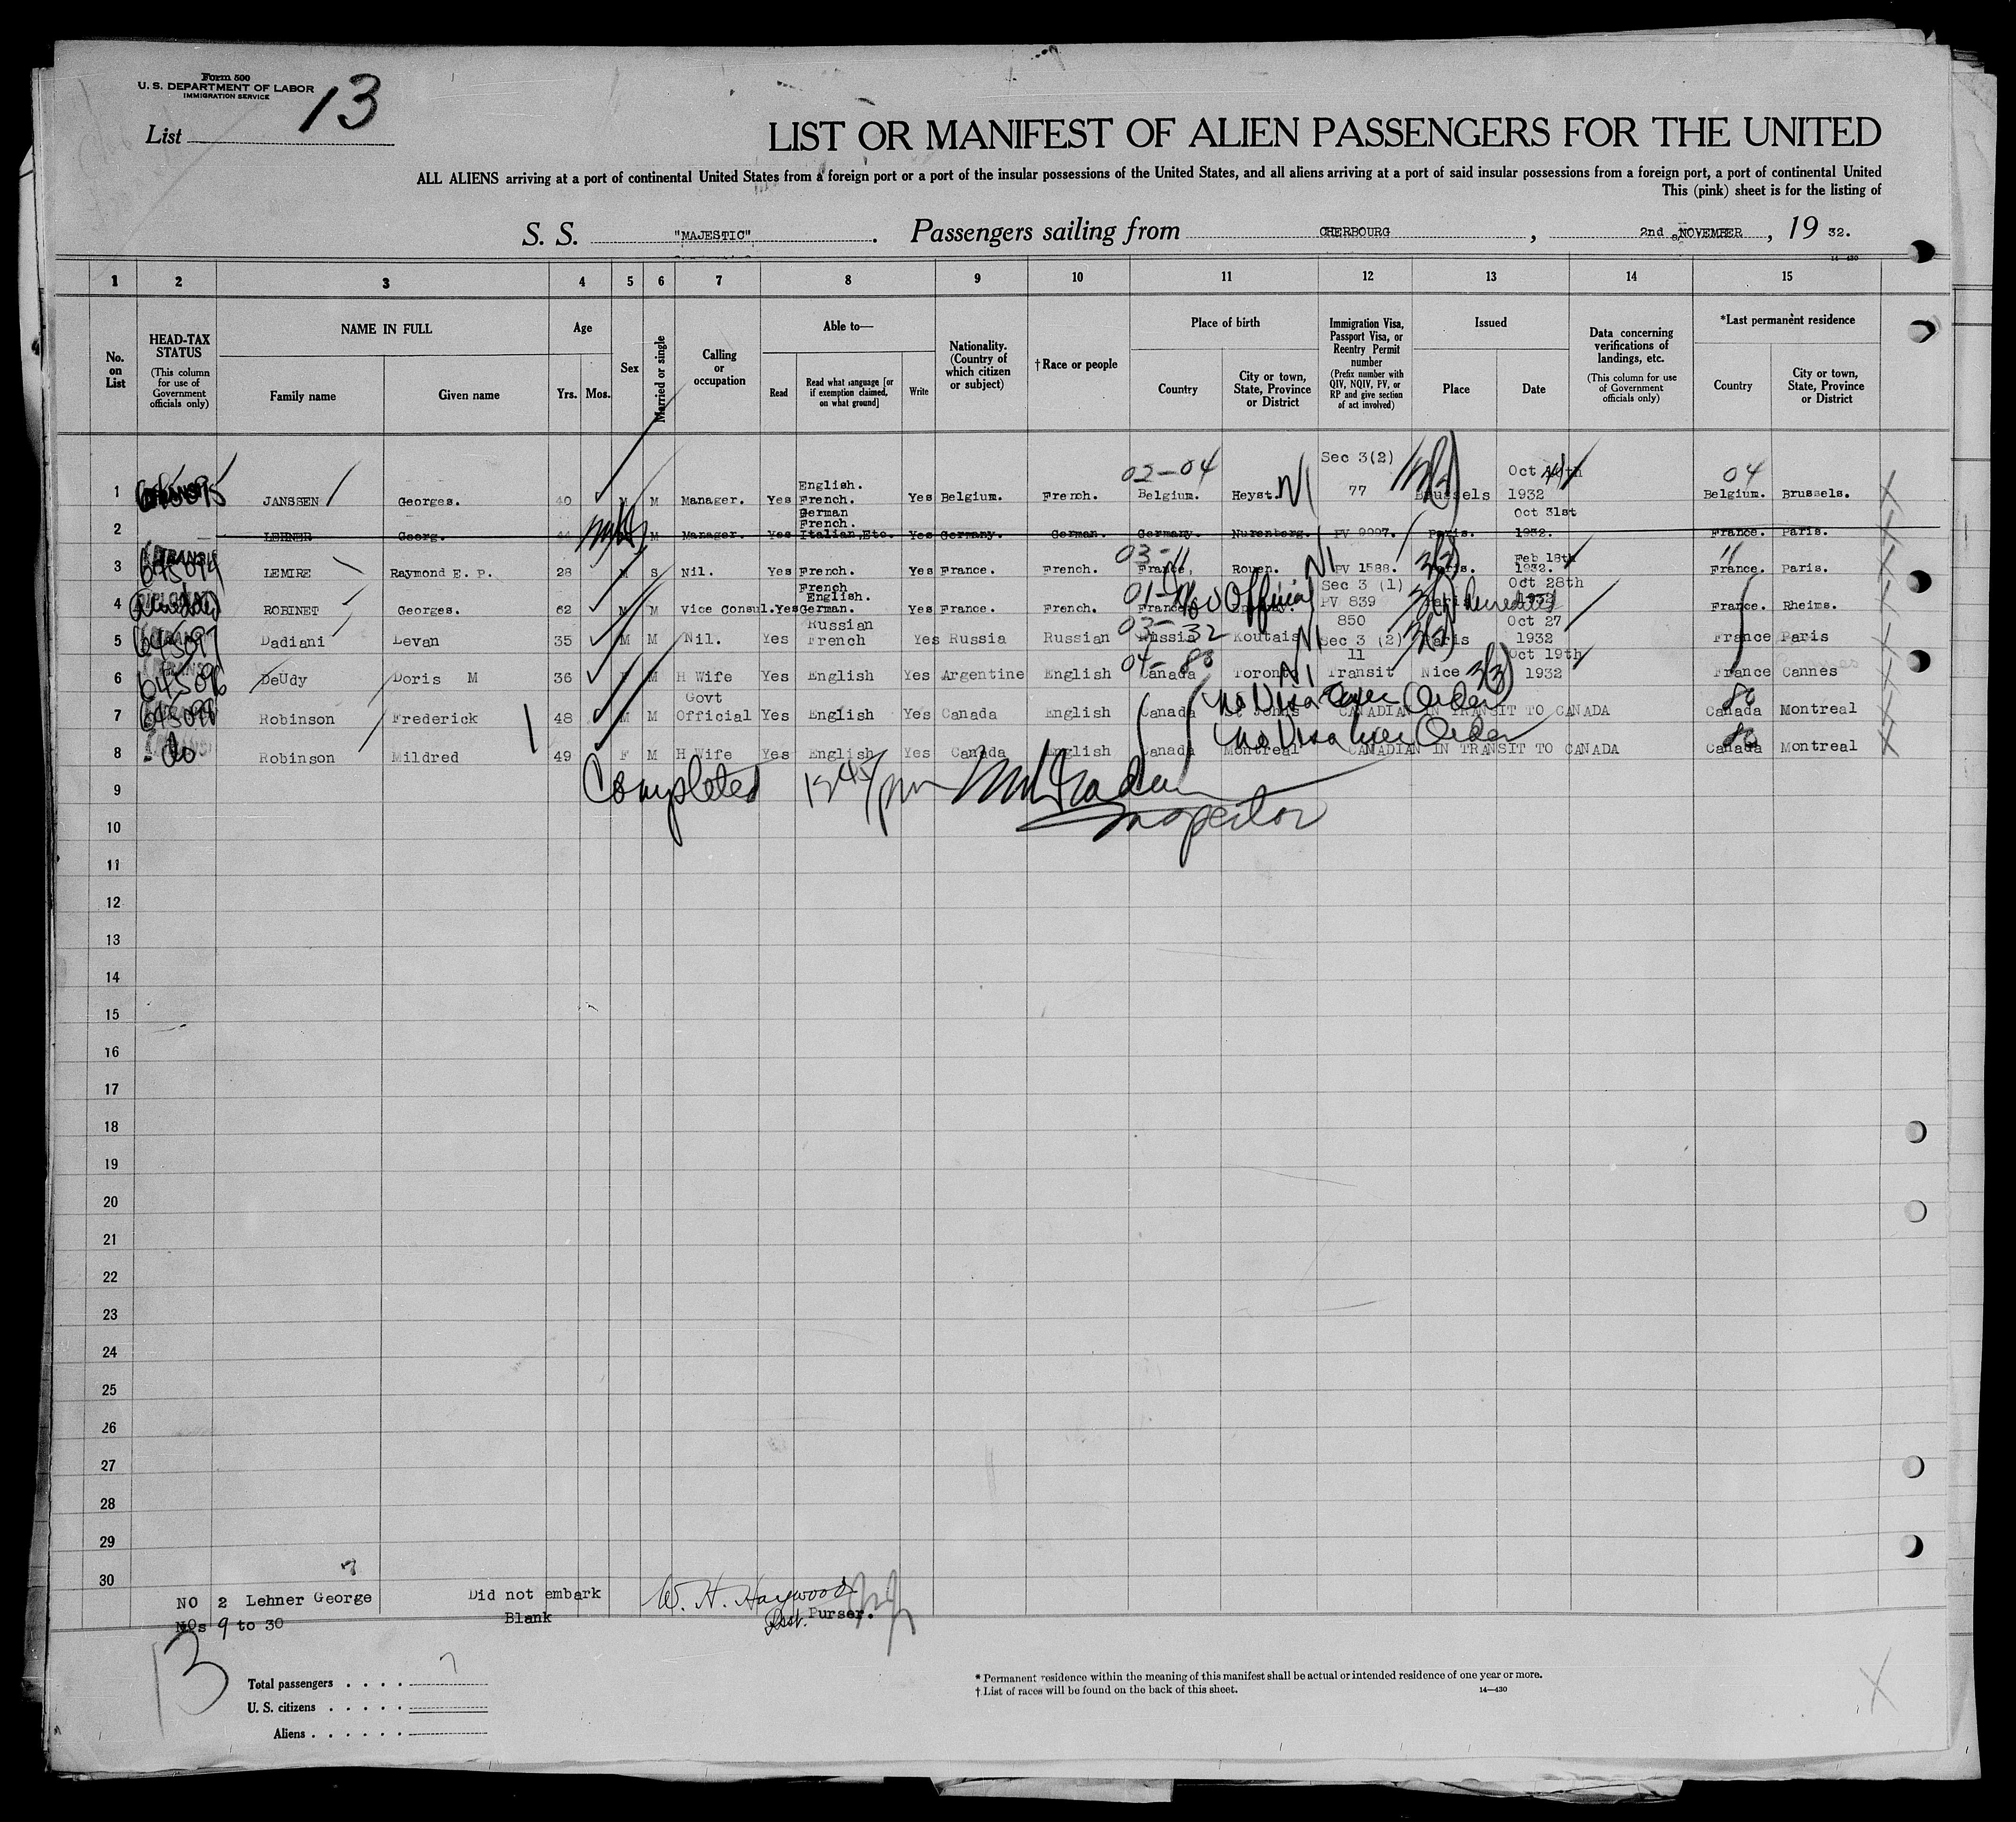 Form 500
U. S. DEPARTMENT OF LABOR
IMMIGRATION SERVICE
List 13
LIST OR MANIFEST OF ALIEN PASSENGERS FOR THE UNITED
ALL ALIENS arriving at a port of continental United States from a foreign port or a port of the insular possessions of the United States, and all aliens arriving at a port of said insular possessions from a foreign port, a port of continental United
This (pink) sheet is for the listing of
S. S. "MAJESTIC". Passengers sailing from CHERBOURG, 2nd NOVEMBER, 19 32.
14—430
1 2 3 4 5 6 7 8 9 10 11 12 13 14 15
No. on List
HEAD-TAX STATUS (This column for use of Government officials only)
NAME IN FULL
Family name Given name
Age Yrs. Mos.
Sex
Married or single
Calling or occupation
Able to—
Read Read what language [or if exemption claimed, on what ground] Write
Nationality. (Country of which citizen or subject)
†Race or people
Place of birth
Country City or town, State, Province or District
Immigration Visa, Passport Visa, or Reentry Permit number (Prefix number with QIV, NQIV, PV, or RP and give section of act involved)
Issued
Place Date
Data concerning verifications of landings, etc. (This column for use of Government officials only)
*Last permanent residence
Country City or town, State, Province or District
02-04 Sec 3(2) 3(2) Oct 04
1 JANSSEN Georges. 40 M M Manager. Yes English. French. Yes Belgium. French. Belgium. Heyst. 77 Brussels 1932 Belgium. Brussels.
2 LEHNER Georg. 44 M Manager. Yes German French. Italian,Etc. Yes Germany. German. Germany. Nurenberg. PV 9097. Paris. Oct 31st 1932. France. Paris.
TRANSIT 645094 03-11 NI 3(2) 11
3 LEMIRE Raymond E. P. 28 M S Nil. Yes French. Yes France. French. France, Rouen. PV 1588. Paris. Feb 18th 1932. France. Paris.
DIPLOMAT No Official
4 ROBINET Georges. 62 M M Vice Consul. Yes French English. German. Yes France. French. France Sec 3 (1) PV 839 Paris Oct 28th 1932 France. Rheims.
645097 03-32 NI 3(2)
5 Dadiani Levan 35 M M Nil. Yes Russian French Yes Russia Russian Russia Koutais 850 Sec 3 (2) Paris Oct 27 1932 France Paris
645096 04-80 NI 3(3)
6 DeUdy Doris M 36 F M H Wife Yes English Yes Argentine English Canada Toronto 11 Transit Nice Oct 19th 1932 France Cannes
645098 No Visa Exec Order 80
7 Robinson Frederick 48 M M Govt Official Yes English Yes Canada English Canada St Johns CANADIAN IN TRANSIT TO CANADA Canada Montreal
do No Visa Exec Order 80
8 Robinson Mildred 49 F M H Wife Yes English Yes Canada English Canada Montreal CANADIAN IN TRANSIT TO CANADA Canada Montreal
Completed 1245 pm
Inspector
9
10
11
12
13
14
15
16
17
18
19
20
21
22
23
24
25
26
27
28
29
30
NO 2 Lehner George Did not embark W. H. Haywood
NOs 9 to 30 Blank Asst. Purser.
13
Total passengers . . . . 7
U. S. citizens . . . . .
Aliens . . . . . .
* Permanent residence within the meaning of this manifest shall be actual or intended residence of one year or more.
† List of races will be found on the back of this sheet. 14—430